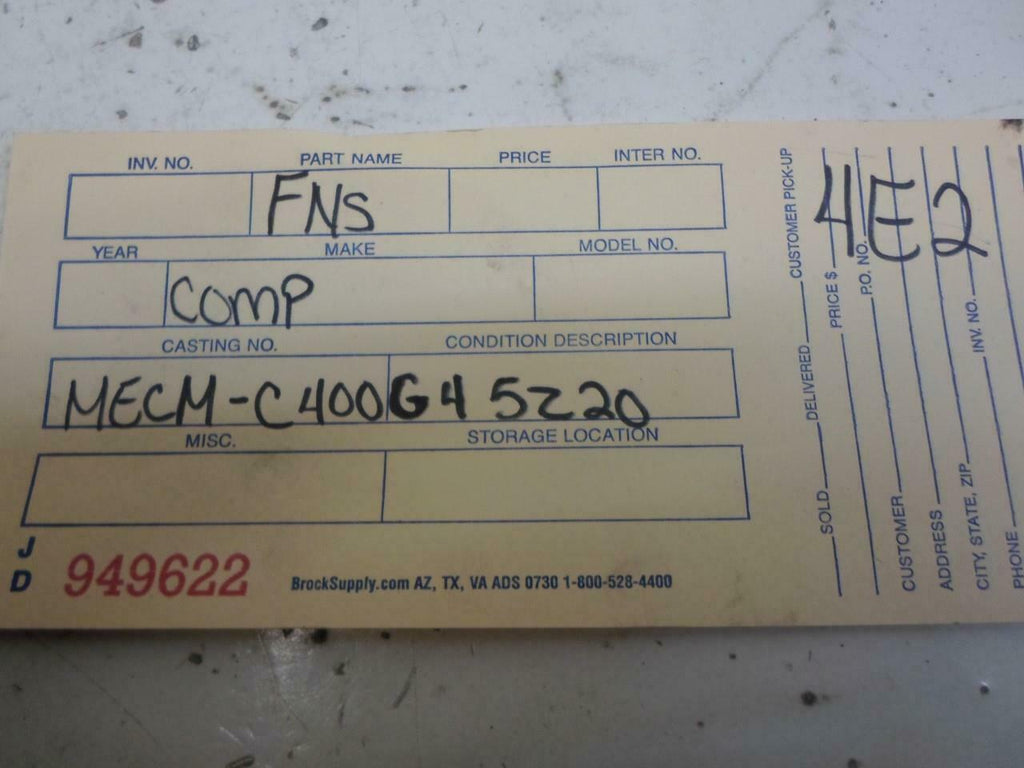 INV. NO. PART NAME PRICE INTER NO.
FNS
YEAR MAKE MODEL NO.
COMP
CASTING NO. CONDITION DESCRIPTION
MECM-C400G45220
MISC. STORAGE LOCATION
J
D
949622
BrockSupply.com AZ, TX, VA ADS 0730 1-800-528-4400
4E2
SOLD DELIVERED CUSTOMER PICK-UP
PRICE $
P.O. NO.
CUSTOMER
ADDRESS
CITY, STATE, ZIP INV. NO.
PHONE